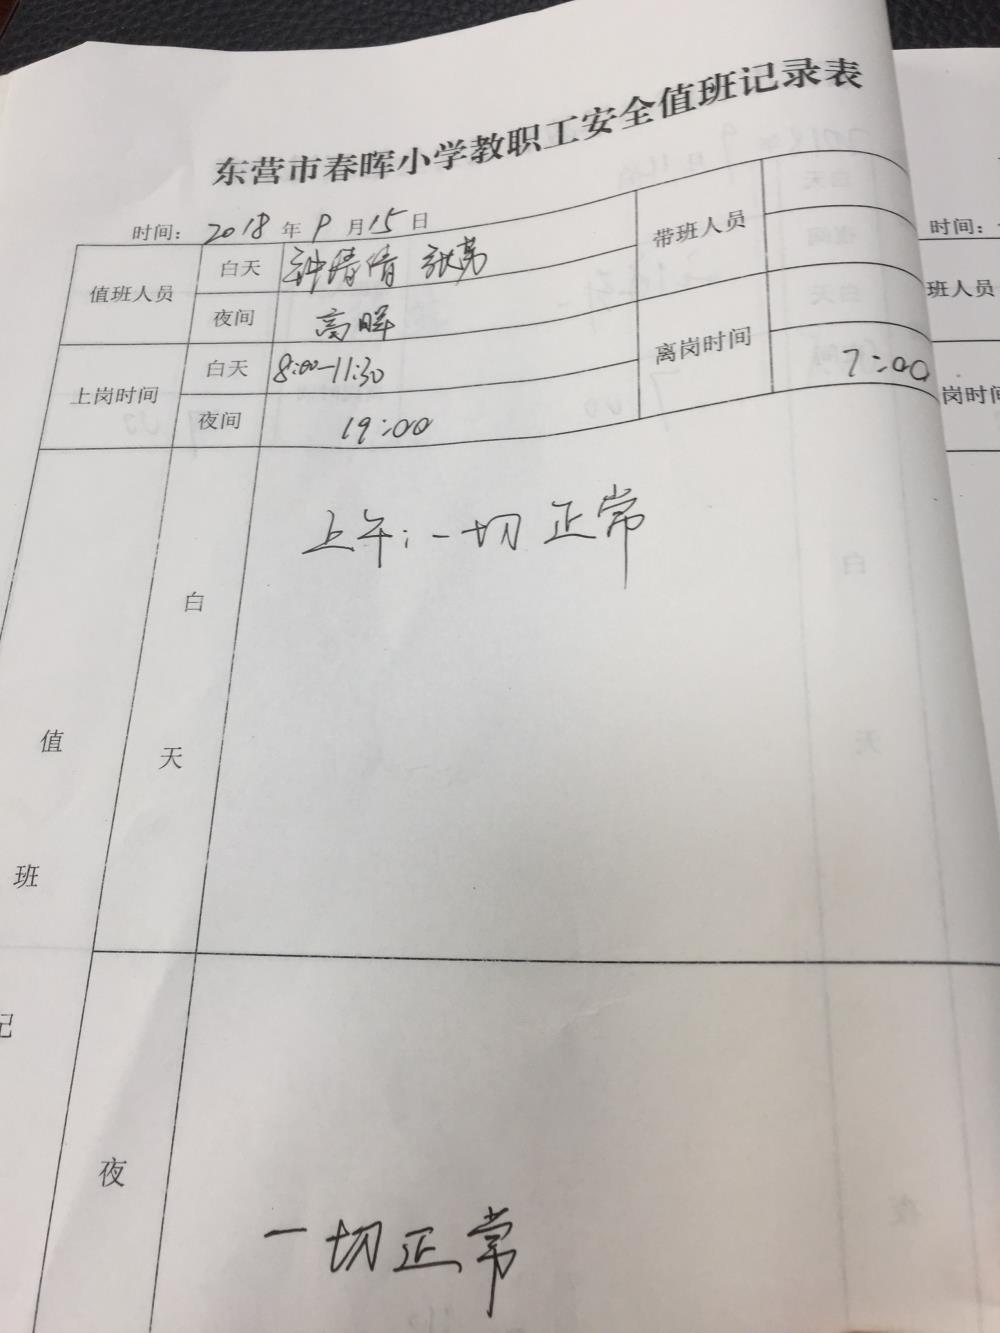 东营市春晖小学教职工安全值班记录表
时间: 2018 年 9 月 15 日
值班人员
白天
钟倩倩 张苇
夜间
高晖
带班人员
上岗时间
白天
8:00-11:30
夜间
19:00
离岗时间
7:00
值
班
记
白
天
上午:一切正常
夜
一切正常
时间:
班人员
岗时间